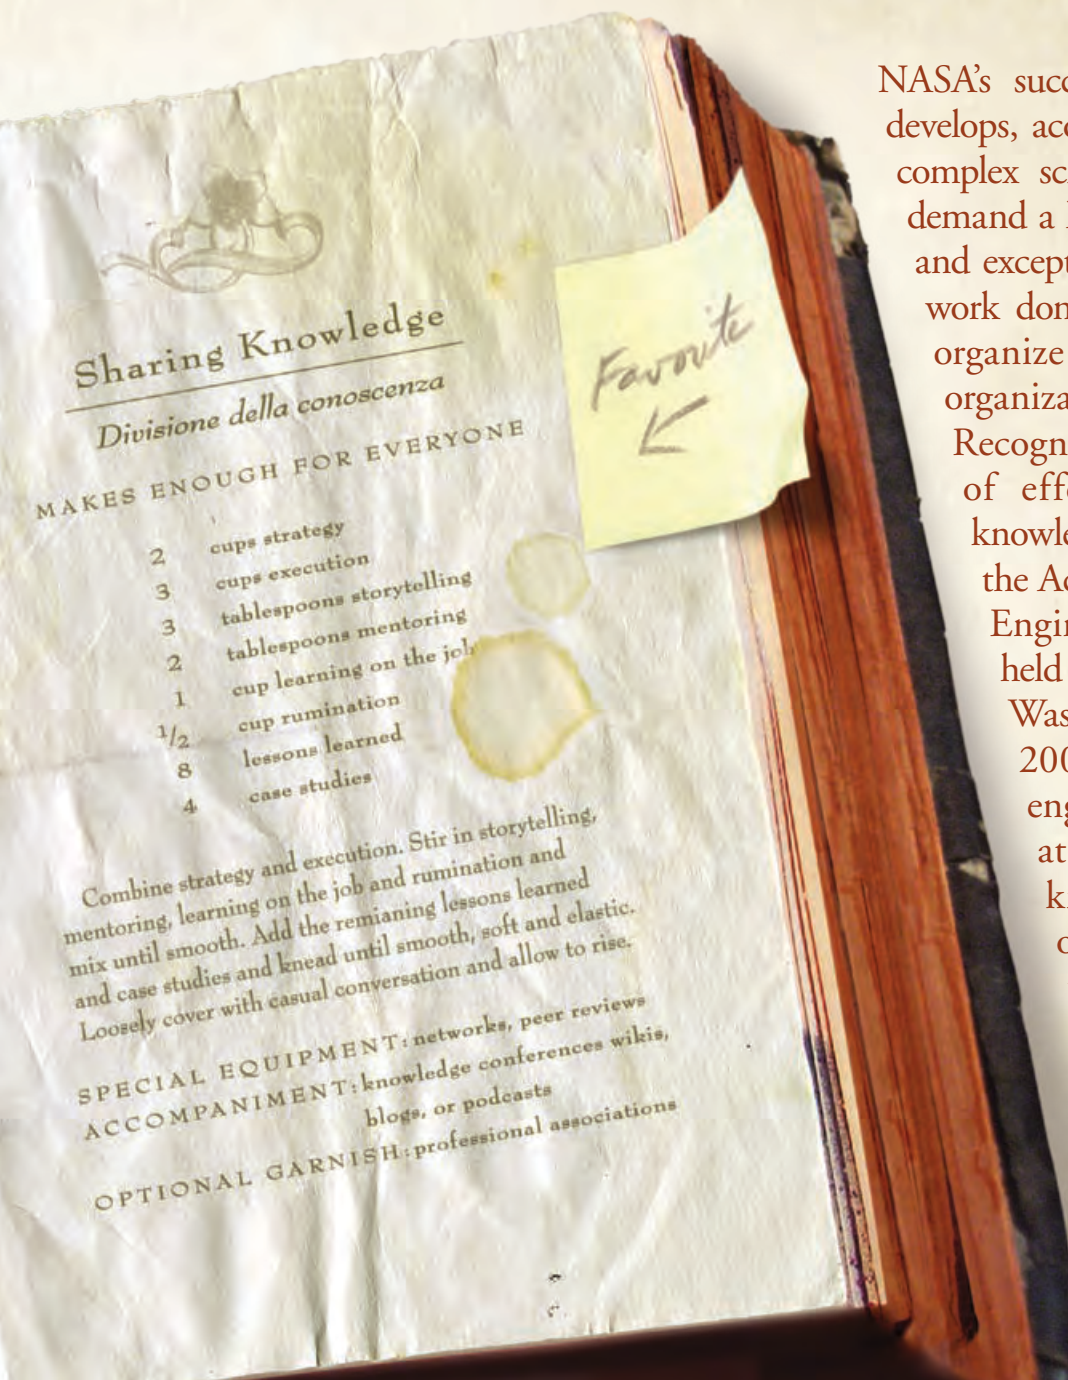 Sharing Knowledge
Divisione della conoscenza
MAKES ENOUGH FOR EVERYONE
2 cups strategy
3 cups execution
3 tablespoons storytelling
2 tablespoons mentoring
1 cup learning on the job
1/2 cup rumination
8 lessons learned
4 case studies
Combine strategy and execution. Stir in storytelling,
mentoring, learning on the job and rumination and
mix until smooth. Add the remianing lessons learned
and case studies and knead until smooth, soft and elastic.
Loosely cover with casual conversation and allow to rise.
SPECIAL EQUIPMENT: networks, peer reviews
ACCOMPANIMENT: knowledge conferences wikis,
blogs, or podcasts
OPTIONAL GARNISH: professional associations
Favorite
NASA's succ
develops, ac
complex sc
demand a
and except
work don
organize
organiza
Recogn
of effe
knowle
the Ac
Engin
held
Was
200
eng
at
k
o